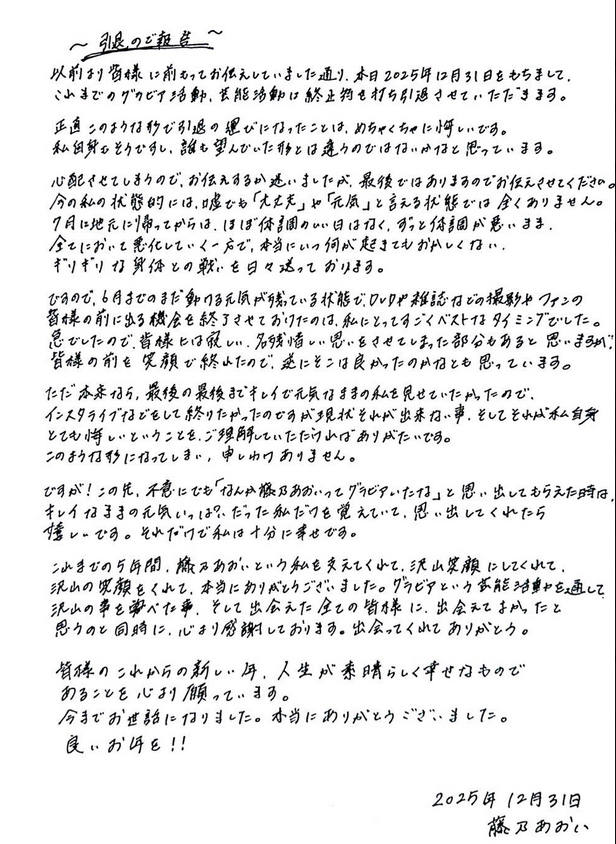 ～引退のご報告～
以前より皆様に前もってお伝えしていました通り、本日2025年12月31日をもちまして、
これまでのグラビア活動、芸能活動に終止符を打ち引退させていただきます。
正直このような形で引退の運びになったことは、めちゃくちゃに悔しいです。
私自身もそうですし、誰も望んでいた形とは違うのではないかなと思っています。
心配させてしまうので、お伝えするか迷いましたが、最後ではありますのでお伝えさせてください。
今の私の状態的には、嘘でも「大丈夫」や「元気」と言える状態では全くありません。
7月に地元に帰ってからは、ほぼ体調のいい日はなく、ずっと体調が悪いまま、
全てにおいて悪化していく一方で、本当にいつ何が起きてもおかしくない、
ギリギリな身体との戦いを日々送っております。
ですので、6月までのまだ動ける元気が残っている状態で、DVDや雑誌などの撮影やファンの
皆様の前に出る機会を終了させておけたのは、私にとってすごくベストなタイミングでした。
急でしたので、皆様には寂しい、名残惜しい思いをさせてしまった部分もあると思いますが、
皆様の前を笑顔で終れたので、逆にそこは良かったのかなとも思っています。
ただ本来なら、最後の最後までキレイで元気なままの私を見せていたかったので、
インスタライブなどをして終りたかったのですが現状それが出来ない事、そしてそれが私自身
とても悔しいということを、ご理解していただければありがたいです。
このような形になってしまい、申しわけありません。
ですが！この先、不意にでも「なんか藤乃あおいってグラビアいたな」と思い出してもらえた時は、
キレイなままの元気いっぱい、だった私だけを覚えていて、思い出してくれたら
嬉しいです。それだけで私は十分に幸せです。
これまでの5年間、藤乃あおいという私を支えてくれて、沢山笑顔にしてくれて、
沢山の笑顔をくれて、本当にありがとうございました。グラビアという芸能活動を通して
沢山の事を学べた事、そして出会えた全ての皆様に、出会えてよかったと
思うのと同時に、心より感謝しております。出会ってくれてありがとう。
皆様のこれからの新しい年、人生が素晴らしく幸せなもので
あることを心より願っています。
今までお世話になりました。本当にありがとうございました。
良いお年を！！
2025年12月31日
藤乃あおい